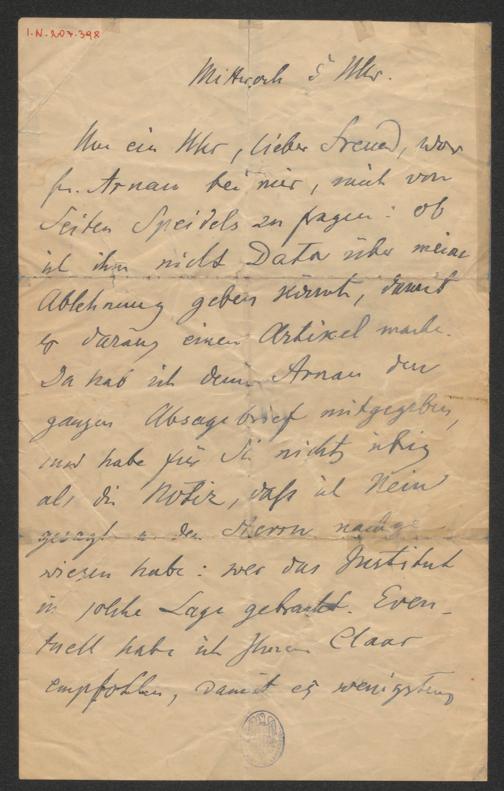 I.N. 207.398
Mittwoch 5 Uhr.
Um ein Uhr, lieber Freund, war
Fr. Arnau bei mir, mich von
Seiten Speidels zu fragen: ob
ich ihm nicht Data über meine
Ablehnung geben könnte, damit
er daraus einen Artikel mache.
Da hab ich denn Arnau den
ganzen Absagebrief mitgegeben,
und habe für Sie nichts übrig
als die Notiz, daß ich Nein
gesagt u. den Herrn nachge
wiesen habe: wer das Institut
in solche Lage gebracht. Even-
tuell habe ich Claar
empfohlen, damit es wenigstens